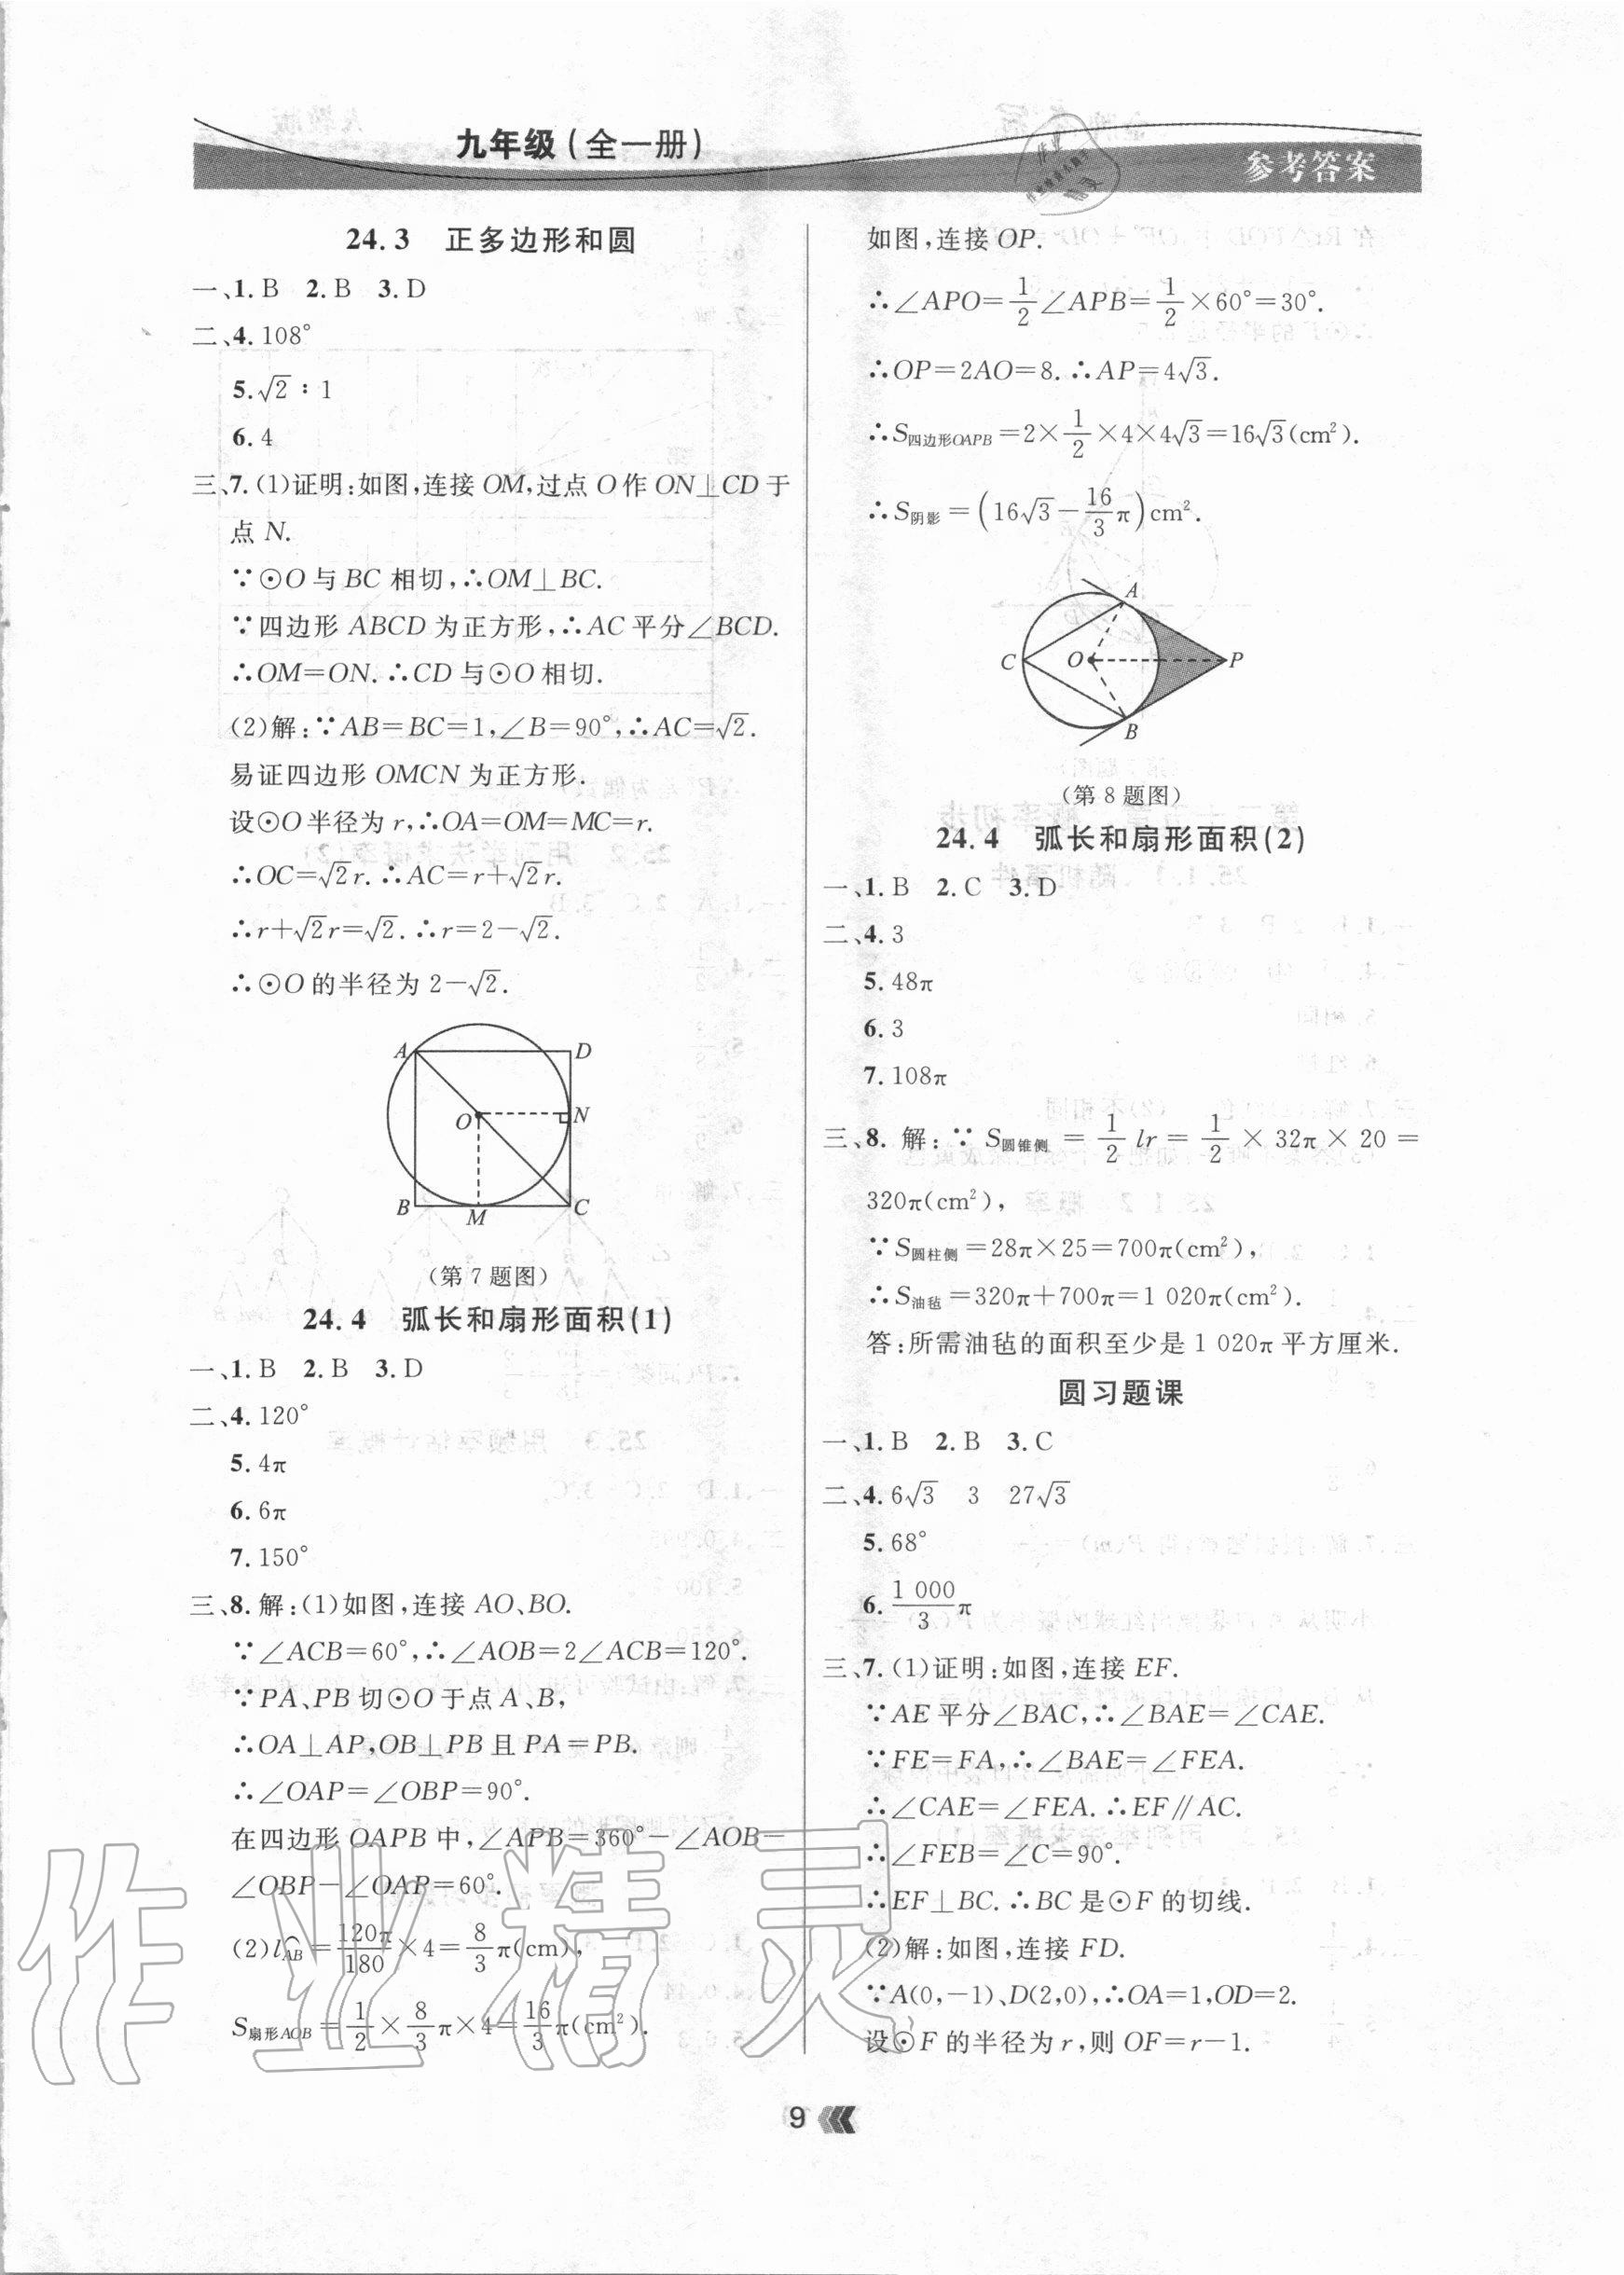 九年级(全一册)
参考答案
24.3 正多边形和圆
一、1.B 2.B 3.D
二、4.108°
5.√2∶1
6.4
三、7.(1)证明:如图,连接OM,过点O作ON⊥CD于
点N.
∵⊙O与BC相切,∴OM⊥BC.
∵四边形ABCD为正方形,∴AC平分∠BCD.
∴OM=ON.∴CD与⊙O相切.
(2)解:∵AB=BC=1,∠B=90°,∴AC=√2.
易证四边形OMCN为正方形.
设⊙O半径为r,∴OA=OM=MC=r.
∴OC=√2r.∴AC=r+√2r.
∴r+√2r=√2.∴r=2-√2.
∴⊙O的半径为2-√2.
A D
O N
B M C
(第7题图)
24.4 弧长和扇形面积(1)
一、1.B 2.B 3.D
二、4.120°
5.4π
6.6π
7.150°
三、8.解:(1)如图,连接AO、BO.
∵∠ACB=60°,∴∠AOB=2∠ACB=120°.
∵PA、PB切⊙O于点A、B,
∴OA⊥AP,OB⊥PB且PA=PB.
∴∠OAP=∠OBP=90°.
在四边形OAPB中,∠APB=360°-∠AOB-
∠OBP-∠OAP=60°.
(2)l⌒AB=120π/180×4=8/3π(cm),
S扇形AOB=1/2×8/3π×4=16/3π(cm²).
如图,连接OP.
∴∠APO=1/2∠APB=1/2×60°=30°.
∴OP=2AO=8.∴AP=4√3.
∴S四边形OAPB=2×1/2×4×4√3=16√3(cm²).
∴S阴影=(16√3-16/3π)cm².
A
C O P
B
(第8题图)
24.4 弧长和扇形面积(2)
一、1.B 2.C 3.D
二、4.3
5.48π
6.3
7.108π
三、8.解:∵S圆锥侧=1/2lr=1/2×32π×20=
320π(cm²),
∵S圆柱侧=28π×25=700π(cm²),
∴S油毡=320π+700π=1 020π(cm²).
答:所需油毡的面积至少是1 020π平方厘米.
圆习题课
一、1.B 2.B 3.C
二、4.6√3 3 27√3
5.68°
6.1 000/3π
三、7.(1)证明:如图,连接EF.
∵AE平分∠BAC,∴∠BAE=∠CAE.
∵FE=FA,∴∠BAE=∠FEA.
∴∠CAE=∠FEA.∴EF∥AC.
∴∠FEB=∠C=90°.
∴EF⊥BC.∴BC是⊙F的切线.
(2)解:如图,连接FD.
∵A(0,-1)、D(2,0),∴OA=1,OD=2.
设⊙F的半径为r,则OF=r-1.
9
作业精灵